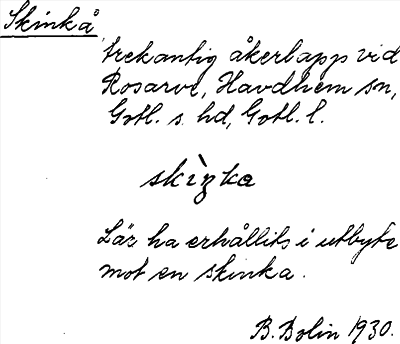 Skinkå
trekantig åkerlapp vid
Rosarve, Havdhem sn,
Gotl. s. hd, Gotl. l.
skìŋka
Lär ha erhållits i utbyte
mot en skinka.
B. Bolin 1930.